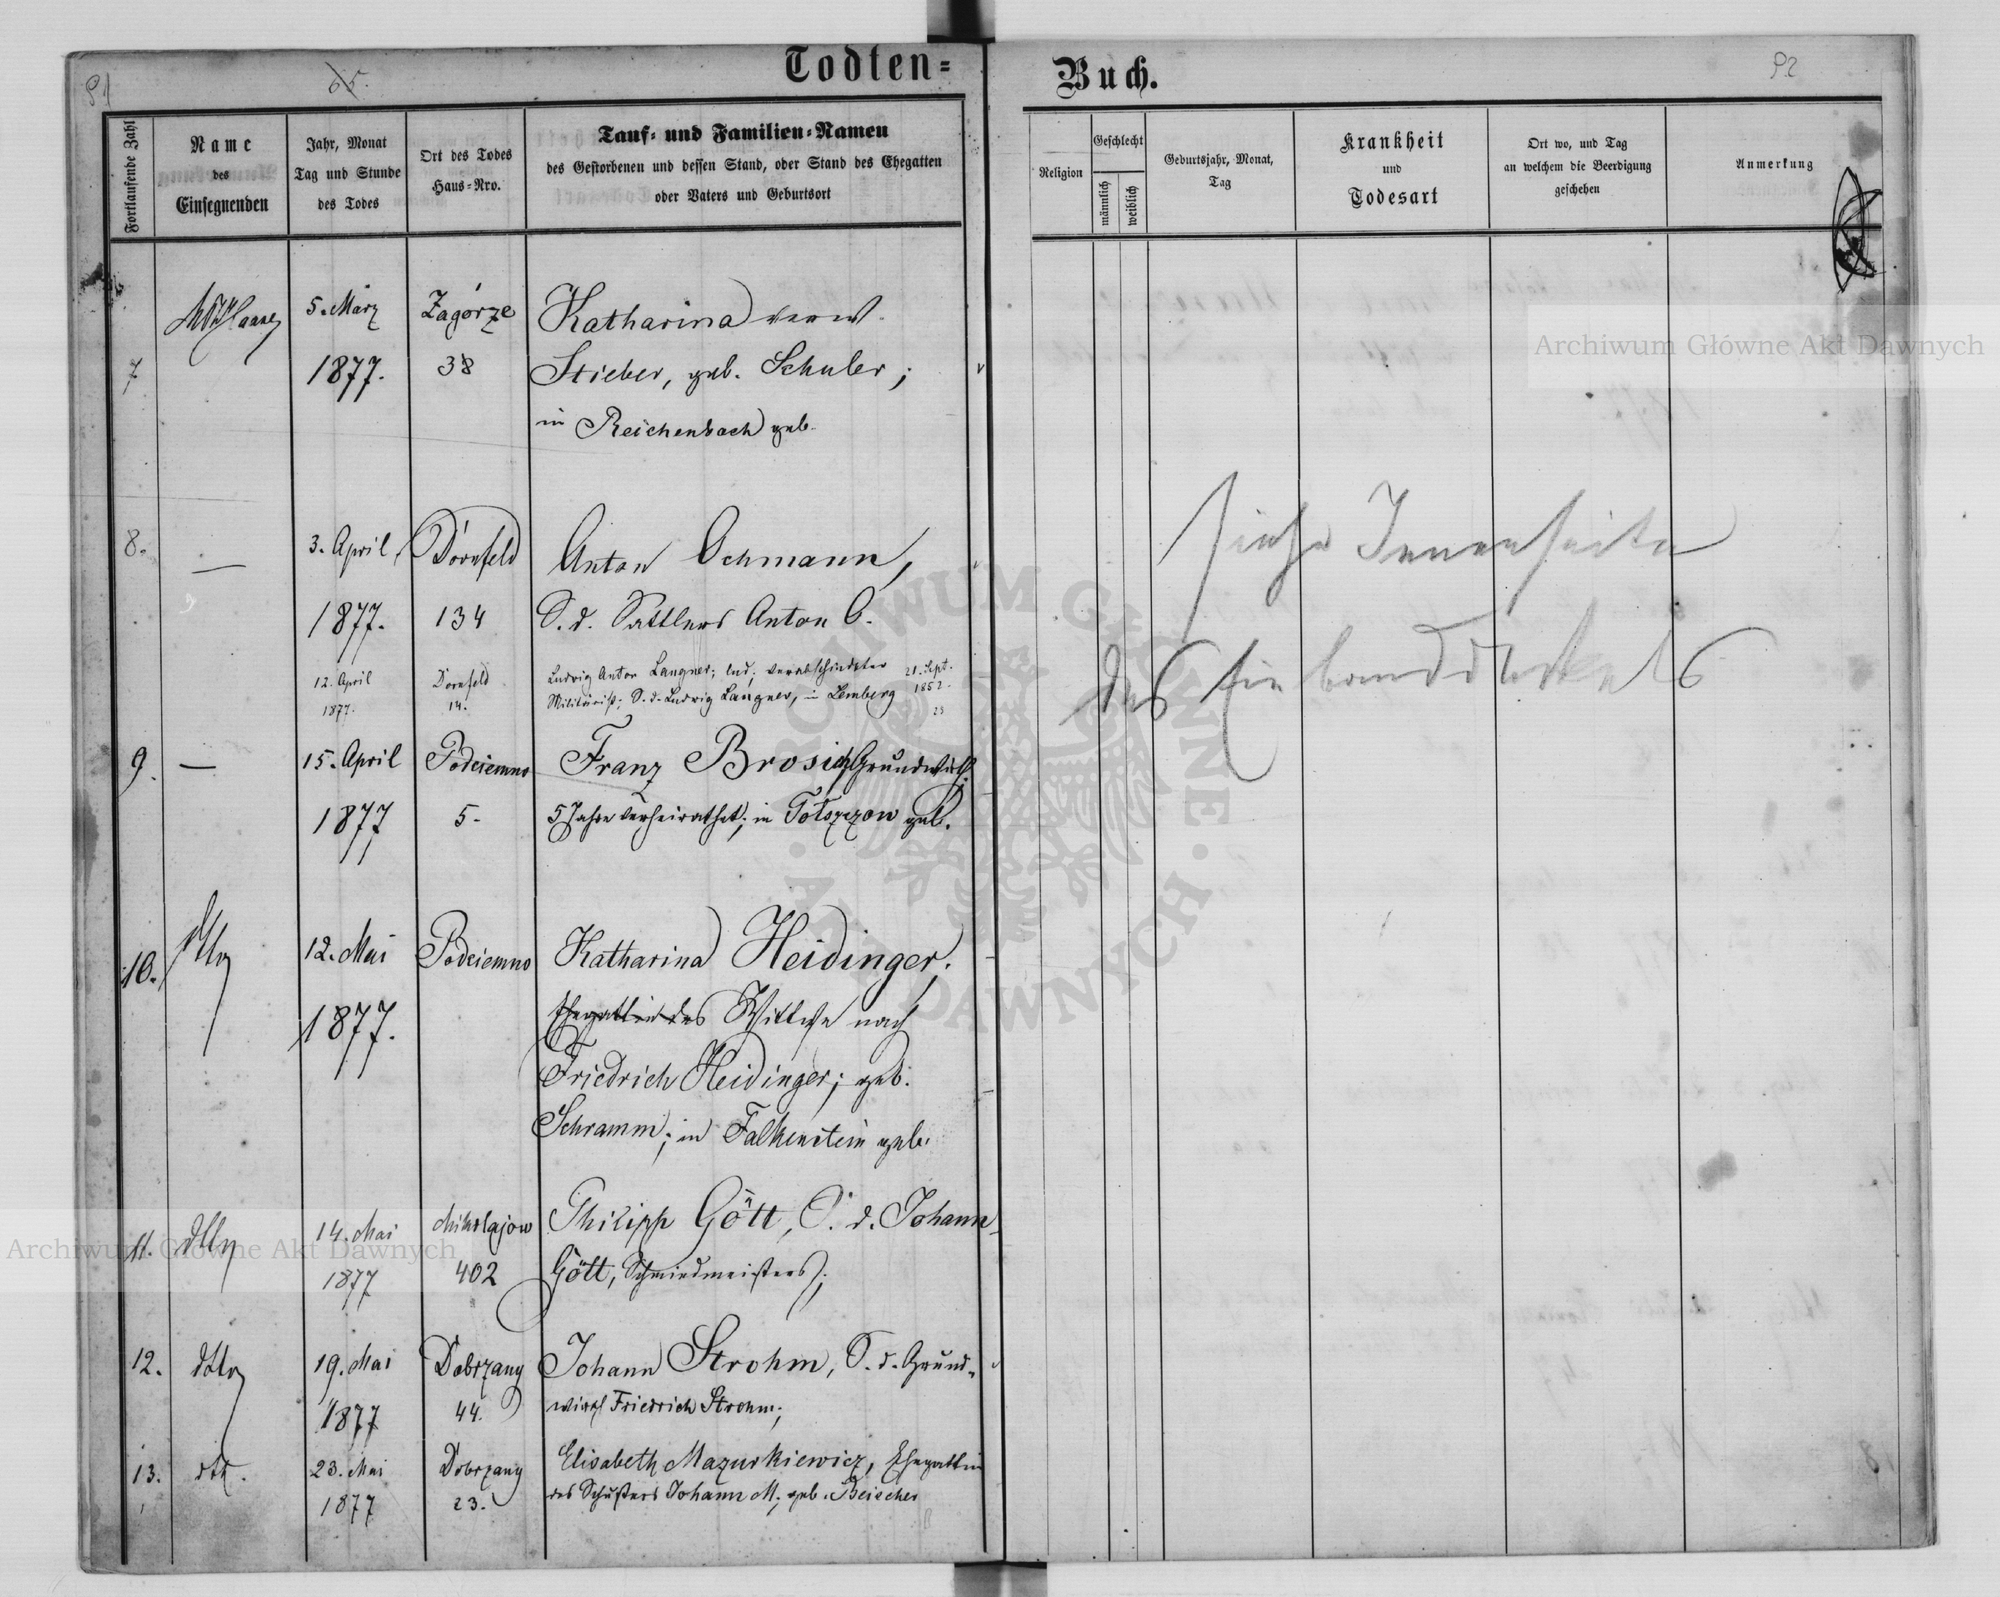 Todten=
Buch.
81
65.
82
Fortlaufende Zahl
Name
des
Einsegnenden
Jahr, Monat
Tag und Stunde
des Todes
Ort des Todes
Haus=Nro.
Tauf= und Familien=Namen
des Gestorbenen und dessen Stand, oder Stand des Ehegatten
oder Vaters und Geburtsort
Religion
Geschlecht
männlich
weiblich
Geburtsjahr, Monat,
Tag
Krankheit
und
Todesart
Ort wo, und Tag
an welchem die Beerdigung
geschehen
Anmerkung
7
Haase
5. März
1877.
Zagórze
38
Katharina verw.
Stieber, geb. Schuler;
in Reichenbach geb.
8.
—
3. April
1877.
Dornfeld
134
Anton Ochmann,
S. d. Sattlers Anton O.
12. April
1877.
Dornfeld
14.
Ludwig Anton Langner; led; verabschiedeter 21. Sept.
Militärist; S. d. Ludwig Langner, in Lemberg 1852.
23
9.
—
15. April
1877
Podciemno
5.
Franz Brosig, Grundwirth;
5 Jahre verheirathet; in geb.
10.
dtto
12. Mai
1877.
Podciemno
Katharina Heidinger;
Ehegattin des Wittwe nach
Friedrich Heidinger; geb.
Schramm; in Falkenstein geb.
11.
dtto
14. Mai
1877
Mikolajow
402
Philipp Gött, S. d. Johann
Gött, Schmiedmeisters;
12.
dtto
19. Mai
1877
Dobrzany
44.
Johann Strohm, S. d. Grund=
wirth Friedrich Strohm;
13.
dto.
23. Mai
1877
Dobrzany
23.
Elisabeth Mazurkiewicz, Ehegattin
des Schusters Johann M; geb. Beischer
siehe Innenseite
des Einbanddeckels
Archiwum Główne Akt Dawnych
Archiwum Główne Akt Dawnych
ARCHIWUM GŁÓWNE · AKT DAWNYCH ·